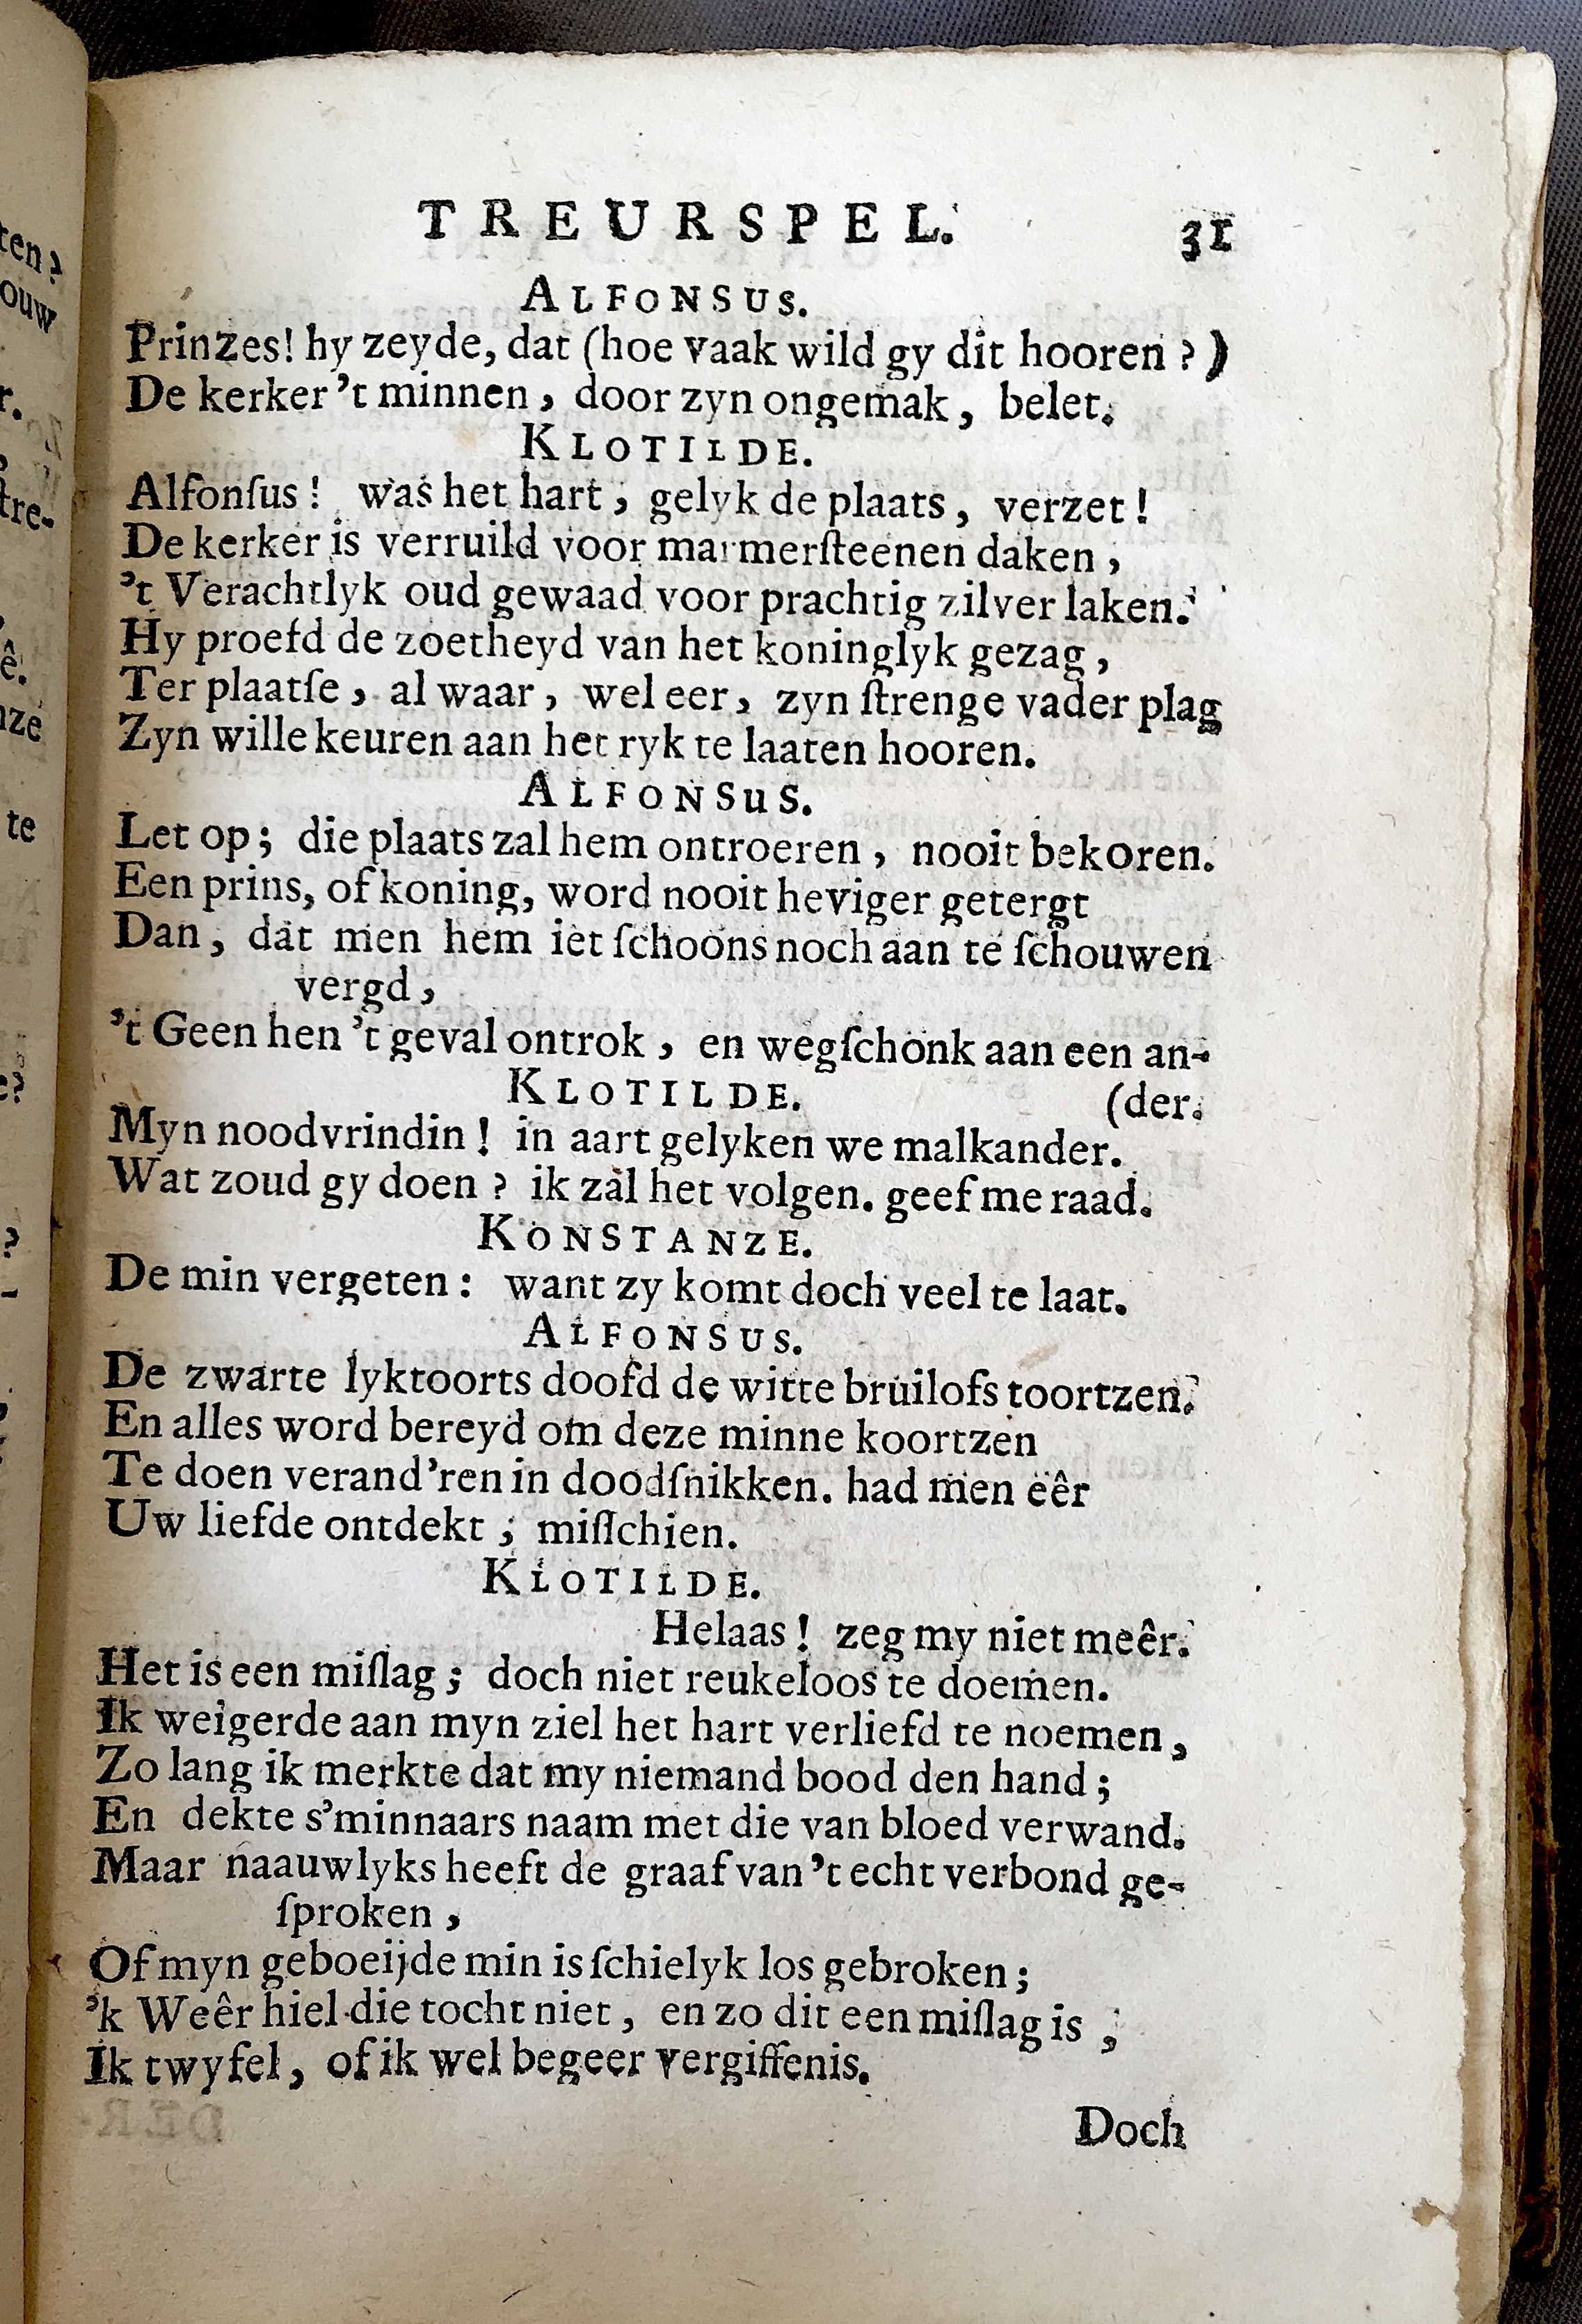 TREURSPEL. 31
ALFONSUS.
Prinzes! hy zeyde, dat (hoe vaak wild gy dit hooren?)
De kerker 't minnen, door zyn ongemak, belet.
KLOTILDE.
Alfonſus! was het hart, gelyk de plaats, verzet!
De kerker is verruild voor marmerſteenen daken,
't Verachtlyk oud gewaad voor prachtig zilver laken.
Hy proefd de zoetheyd van het koninglyk gezag,
Ter plaatſe, al waar, wel eer, zyn ſtrenge vader plag
Zyn wille keuren aan het ryk te laaten hooren.
ALFONSUS.
Let op; die plaats zal hem ontroeren, nooit bekoren.
Een prins, of koning, word nooit heviger getergt
Dan, dat men hem iet ſchoons noch aan te ſchouwen
vergd,
't Geen hen 't geval ontrok, en wegſchonk aan een an-
KLOTILDE. (der.
Myn noodvrindin! in aart gelyken we malkander.
Wat zoud gy doen? ik zal het volgen. geef me raad.
KONSTANZE.
De min vergeten: want zy komt doch veel te laat.
ALFONSUS.
De zwarte lyktoorts doofd de witte bruilofs toortzen.
En alles word bereyd om deze minne koortzen
Te doen verand'ren in doodſnikken. had men eêr
Uw liefde ontdekt; miſſchien.
KLOTILDE.
Helaas! zeg my niet meêr.
Het is een miſlag; doch niet reukeloos te doemen.
Ik weigerde aan myn ziel het hart verliefd te noemen,
Zo lang ik merkte dat my niemand bood den hand;
En dekte s'minnaars naam met die van bloed verwand.
Maar naauwlyks heeft de graaf van 't echt verbond ge-
ſproken,
Of myn geboeijde min is ſchielyk los gebroken;
'k Weêr hiel die tocht niet, en zo dit een miſlag is;
Ik twyfel, of ik wel begeer vergiffenis.
Doch